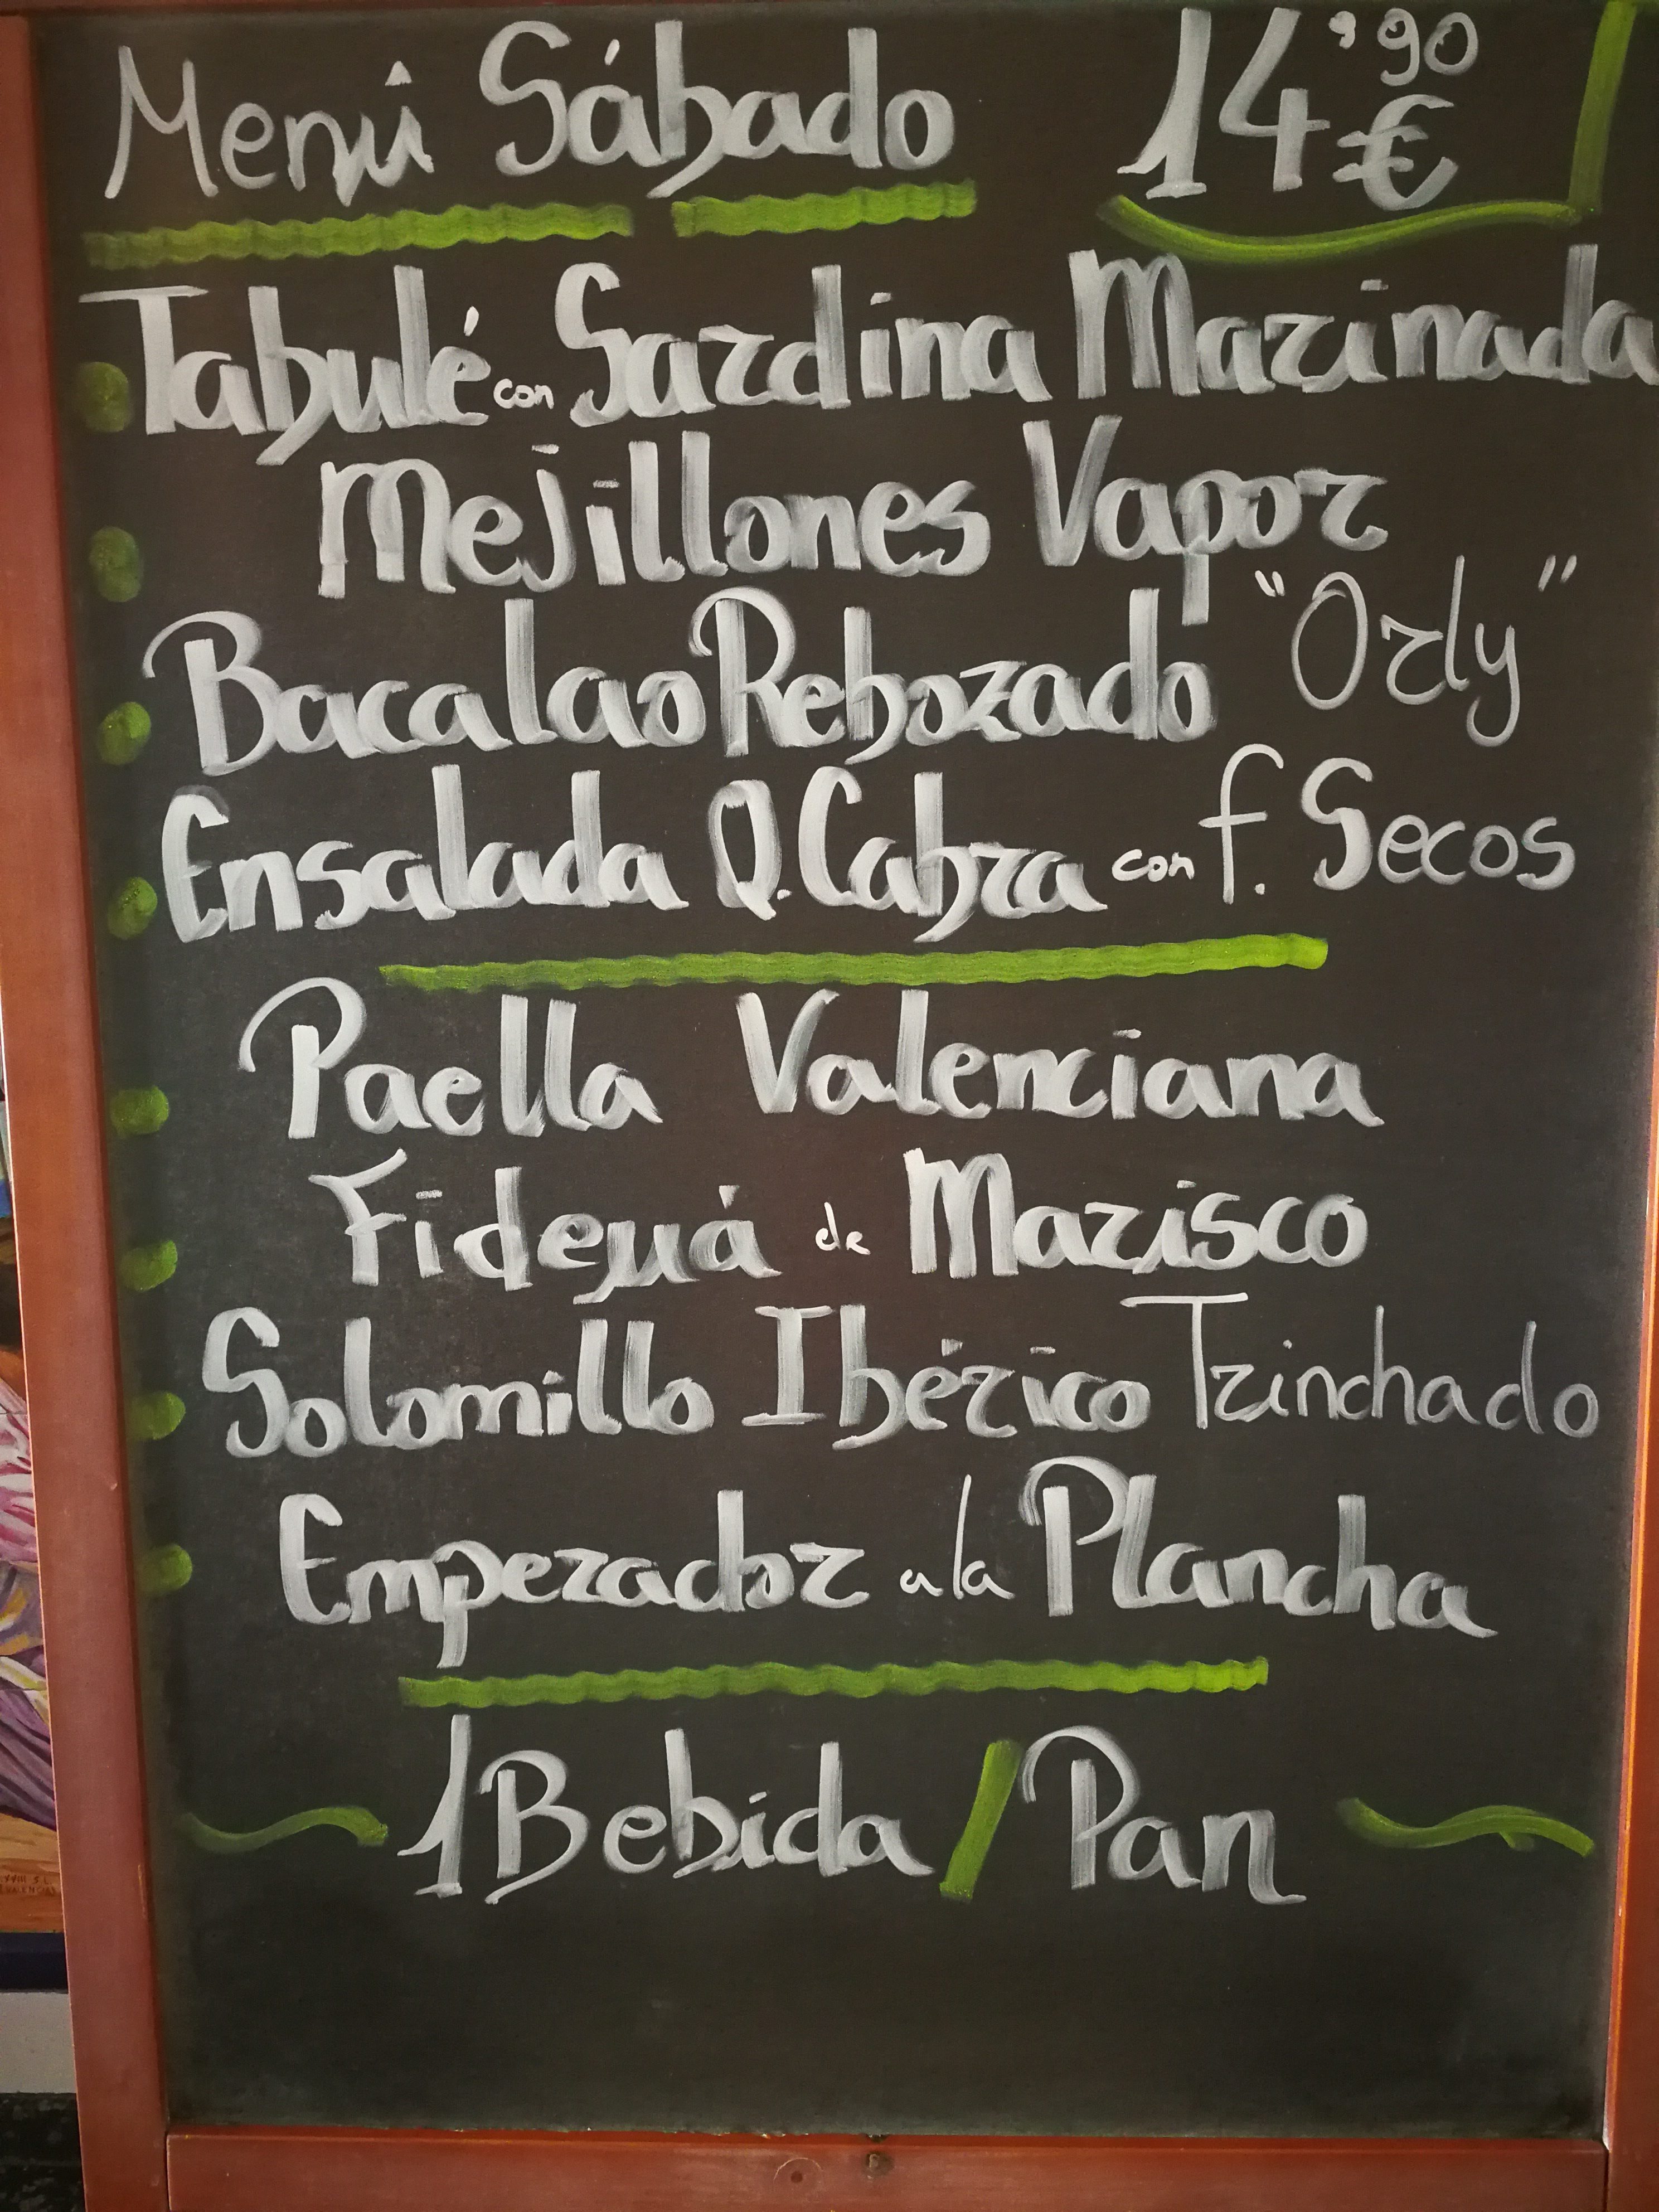 Menú Sábado 14'90 €
Tabulé con Sardina Marinada
Mejillones Vapor
Bacalao Rebozado "Orly"
Ensalada Q. Cabra con f. Secos
Paella Valenciana
Fideuá de Marisco
Solomillo Ibérico Trinchado
Emperador a la Plancha
1 Bebida / Pan